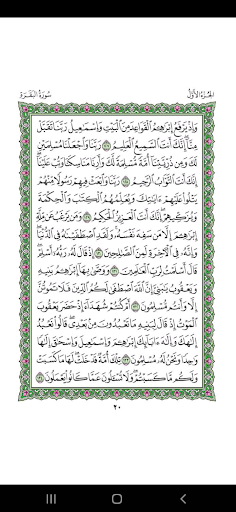 الجزء الأول سورة البقرة
وَإِذْ يَرْفَعُ إِبْرَٰهِـۧمُ ٱلْقَوَاعِدَ مِنَ ٱلْبَيْتِ وَإِسْمَٰعِيلُ رَبَّنَا تَقَبَّلْ
مِنَّآ إِنَّكَ أَنتَ ٱلسَّمِيعُ ٱلْعَلِيمُ ١٢٧ رَبَّنَا وَٱجْعَلْنَا مُسْلِمَيْنِ
لَكَ وَمِن ذُرِّيَّتِنَآ أُمَّةً مُّسْلِمَةً لَّكَ وَأَرِنَا مَنَاسِكَنَا وَتُبْ عَلَيْنَآ
إِنَّكَ أَنتَ ٱلتَّوَّابُ ٱلرَّحِيمُ ١٢٨ رَبَّنَا وَٱبْعَثْ فِيهِمْ رَسُولًا مِّنْهُمْ
يَتْلُوا۟ عَلَيْهِمْ ءَايَٰتِكَ وَيُعَلِّمُهُمُ ٱلْكِتَٰبَ وَٱلْحِكْمَةَ
وَيُزَكِّيهِمْ إِنَّكَ أَنتَ ٱلْعَزِيزُ ٱلْحَكِيمُ ١٢٩ وَمَن يَرْغَبُ عَن مِّلَّةِ
إِبْرَٰهِـۧمَ إِلَّا مَن سَفِهَ نَفْسَهُۥ وَلَقَدِ ٱصْطَفَيْنَٰهُ فِى ٱلدُّنْيَا
وَإِنَّهُۥ فِى ٱلْءَاخِرَةِ لَمِنَ ٱلصَّٰلِحِينَ ١٣٠ إِذْ قَالَ لَهُۥ رَبُّهُۥٓ أَسْلِمْ
قَالَ أَسْلَمْتُ لِرَبِّ ٱلْعَٰلَمِينَ ١٣١ وَوَصَّىٰ بِهَآ إِبْرَٰهِـۧمُ بَنِيهِ
وَيَعْقُوبُ يَٰبَنِىَّ إِنَّ ٱللَّهَ ٱصْطَفَىٰ لَكُمُ ٱلدِّينَ فَلَا تَمُوتُنَّ
إِلَّا وَأَنتُم مُّسْلِمُونَ ١٣٢ أَمْ كُنتُمْ شُهَدَآءَ إِذْ حَضَرَ يَعْقُوبَ
ٱلْمَوْتُ إِذْ قَالَ لِبَنِيهِ مَا تَعْبُدُونَ مِنۢ بَعْدِى قَالُوا۟ نَعْبُدُ
إِلَٰهَكَ وَإِلَٰهَ ءَابَآئِكَ إِبْرَٰهِـۧمَ وَإِسْمَٰعِيلَ وَإِسْحَٰقَ إِلَٰهًا
وَٰحِدًا وَنَحْنُ لَهُۥ مُسْلِمُونَ ١٣٣ تِلْكَ أُمَّةٌ قَدْ خَلَتْ لَهَا مَا كَسَبَتْ
وَلَكُم مَّا كَسَبْتُمْ وَلَا تُسْـَٔلُونَ عَمَّا كَانُوا۟ يَعْمَلُونَ ١٣٤
٢٠